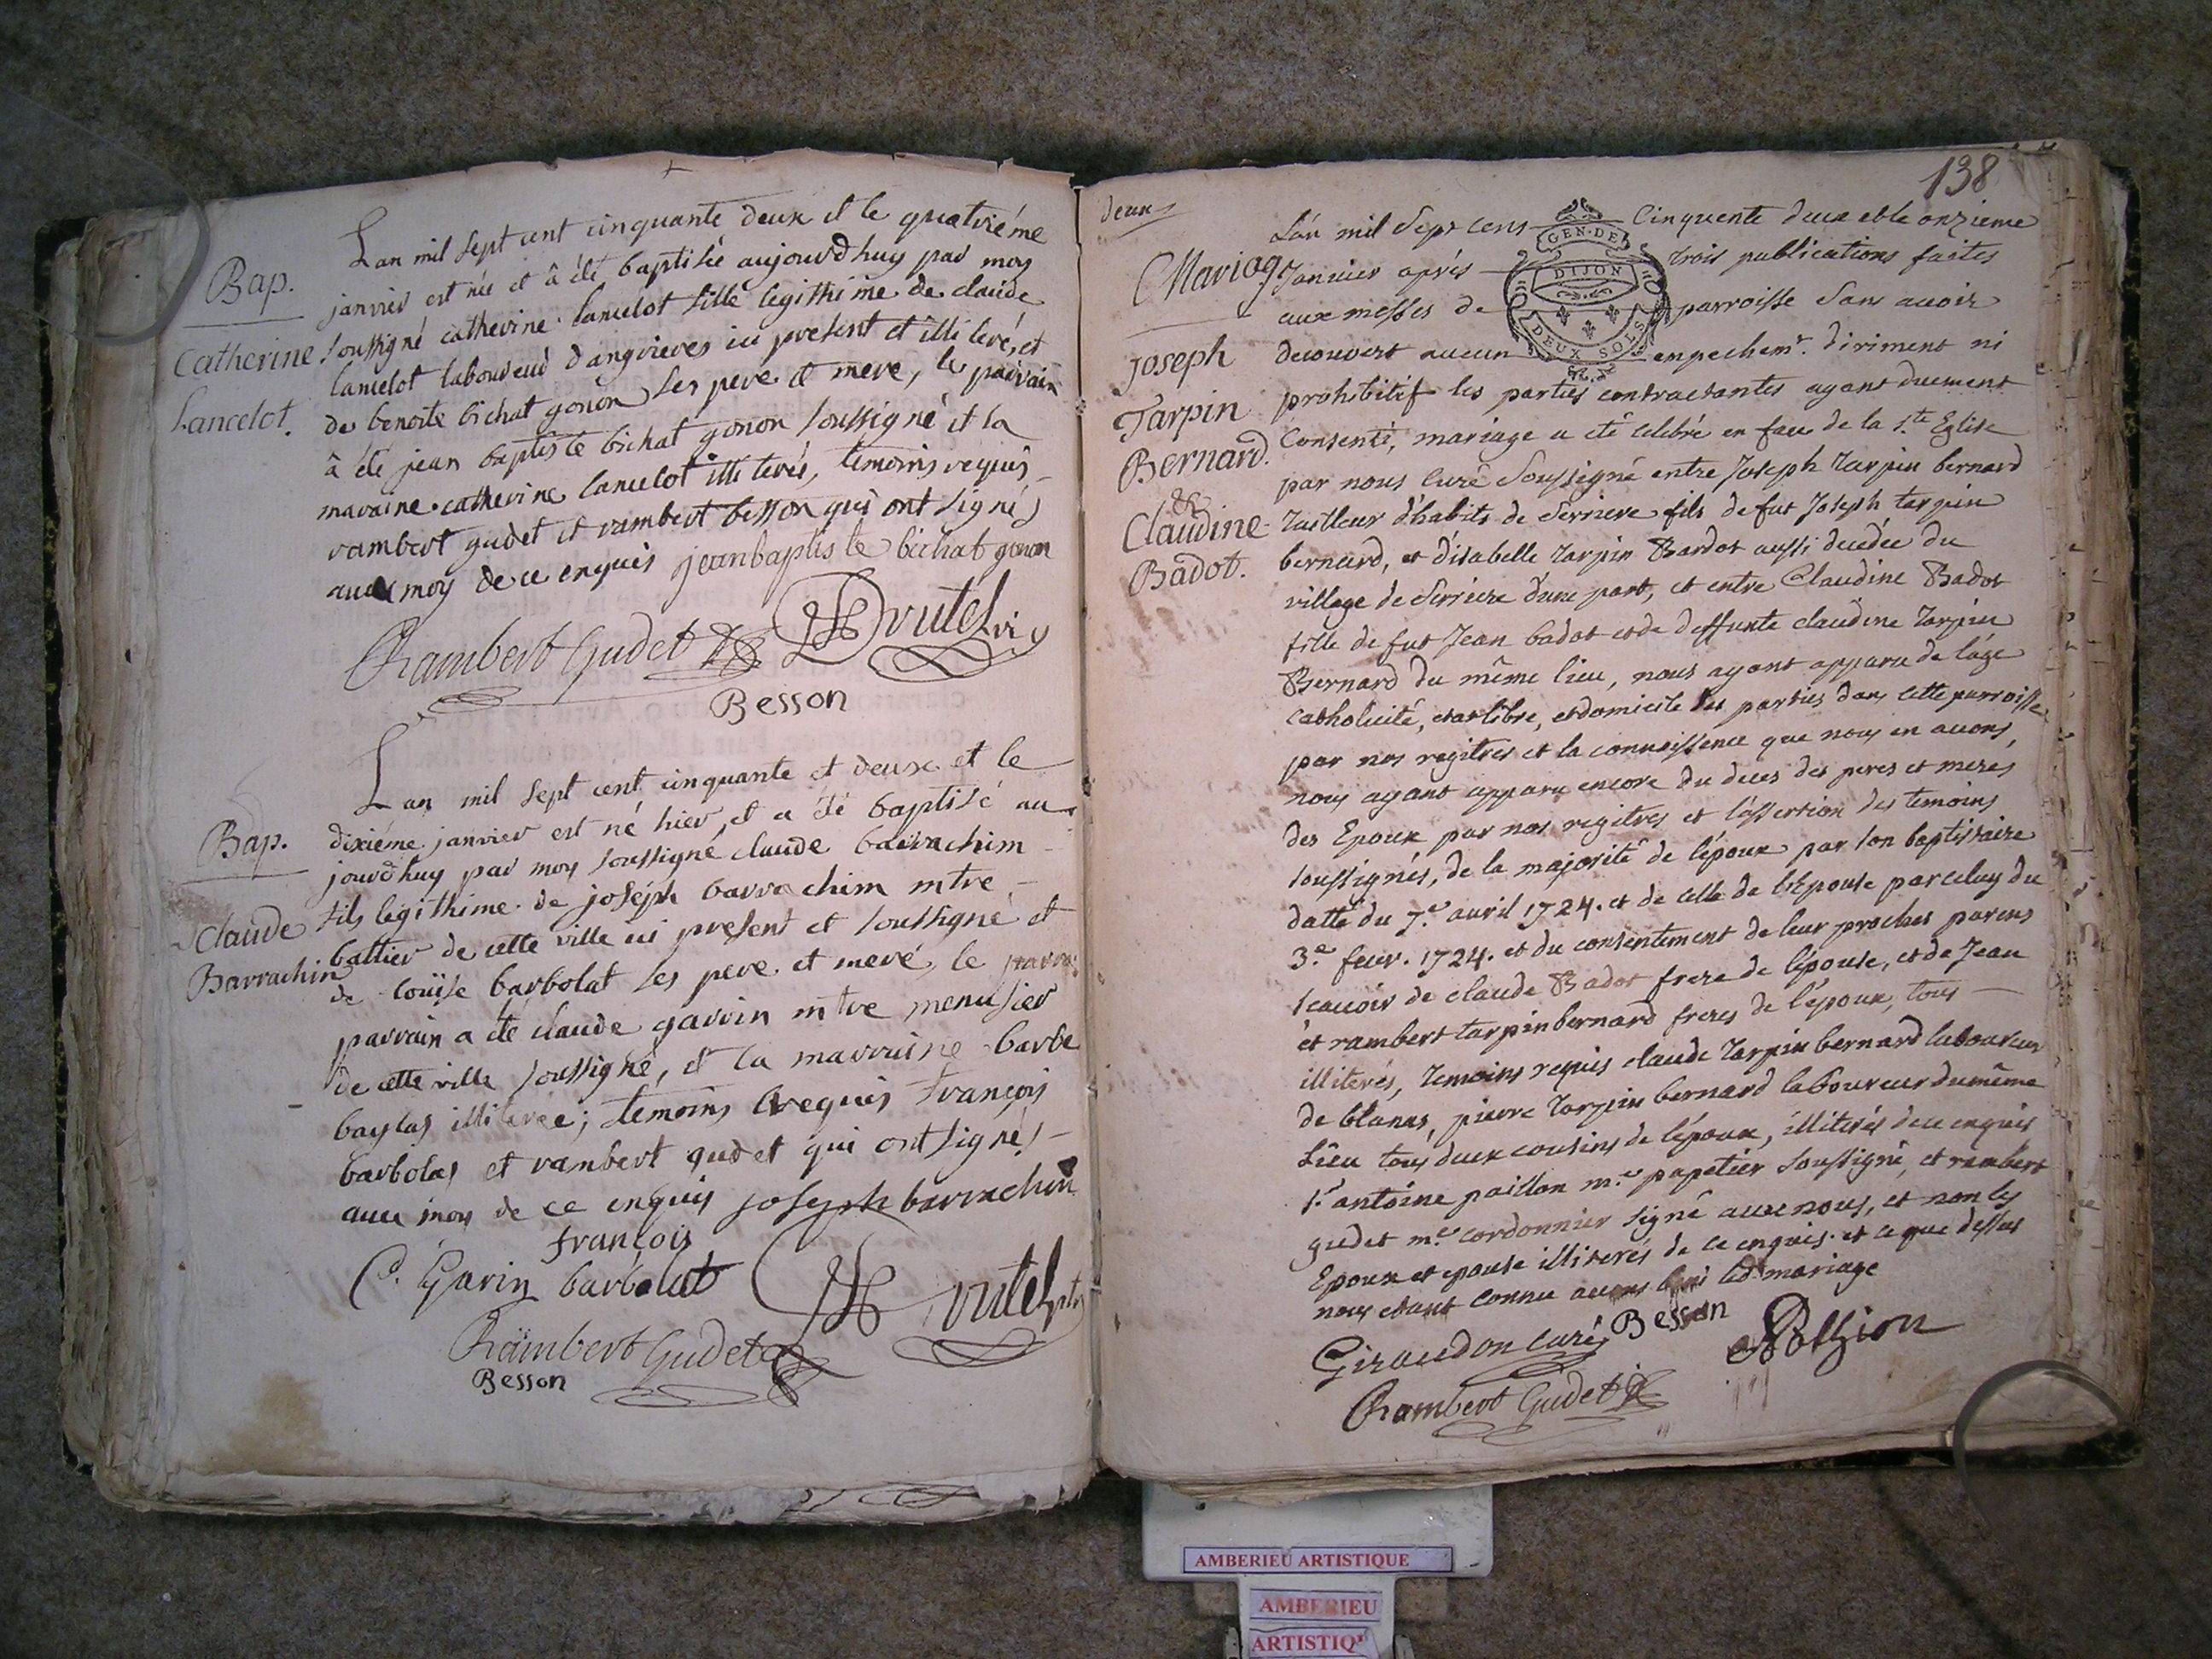 Lan mil sept cent cinquante deux et le quatriéme
Bap.
janvier est née et â été baptisée aujourdhuy par moy
soussigné catherine lancelot fille legithime de claude
Catherine
Lancelot.
lancelot laboureur dangrieres ici present et illiteré, et
de benoite bichat gonon ses pere et mere, le parrain
â été jean baptiste bichat gonon soussigné et la
maraine catherine lancelot illiterée, temoins requis
rambert gudet et rambert besson qui ont signés
avec moy de ce enquis jeanbaptiste bichat gonon
Rambert Gudet
Besson
Lan mil sept cent cinquante et deux et le
Bap.
dixiéme janvier est né hier, et a été baptisé au
jourdhuy par moy soussigné claude barrachim
Claude
Barrachin
fils legithime de joséph barrachim mtre
battier de cette ville ici present et soussigné et
de Louïse barbolat ses pere et meré, le
parrain a été claude garrin mtre menusier
de cette ville soussigné, et la marraine barbe
baylas illiterée; temoins requis françois
barbolas et rambert gudet qui ont signés
avec moy de ce enquis joseph barrachin
françois
C. Garin barbolat
Rambert Gudet
Besson
138
deux
L'an mil Sept cens cinquente deux et le onzieme
Mariag
GEN. DE
DIJON
DEUX SOLS
Janvier aprés trois publications faites
aux messes de parroisse sans avoir
Joseph
Tarpin
Bernard.
&
Claudine
Badot.
decouvert aucun empechemt. diriment ni
prohibitif les parties contractantes ayant duement
Consenti, mariage a été celebré en face de la Ste. Eglise
par nous curé Soussigné entre Joseph Tarpin bernard
Tailleur d'habits de Serriere fils de fut Joseph tarpin
bernard, et d'isabelle Tarpin Bardot aussi decedée du
village de Serriere d'une part, et entre Claudine Badot
fille de fut Jean badot et de deffunte claudine Tarpin
Bernard du même lieu, nous ayant apparu de l'age
catholicité, etat libre, et domicile des parties dans cette parroisse
par nos regitres et la connoissence que nous en avons,
nous ayant apparu encore du deces des peres et meres
des Epoux par nos regitres et l'assertion des temoins
soussignés, de la majorité de l'époux par son baptistaire
datté du 7.e avril 1724. et de celle de l'Epouse par celuy du
3.e fevr. 1724. et du consentement de leur proches parens
scavoir de claude Badot frere de l'épouse, et de Jean
et rambert tarpin bernard freres de l'époux, tous
illiterés, temoins requis claude Tarpin bernard laboureur
de blanas, pierre Tarpin bernard laboureur du même
Lieu tous deux cousins de l'époux, illiterés de ce enquis
Sr. antoine paillon m.e papetier soussigné, et rambert
gudet m.e cordonnier signé avec nous, et non les
Epoux et epouse illiterés de ce enquis. et ce que dessus
nous etant connu avons beni led. mariage
Giraudon curé Besson
Rambert Gudet
AMBERIEU ARTISTIQUE
AMBERIEU
ARTISTIQ